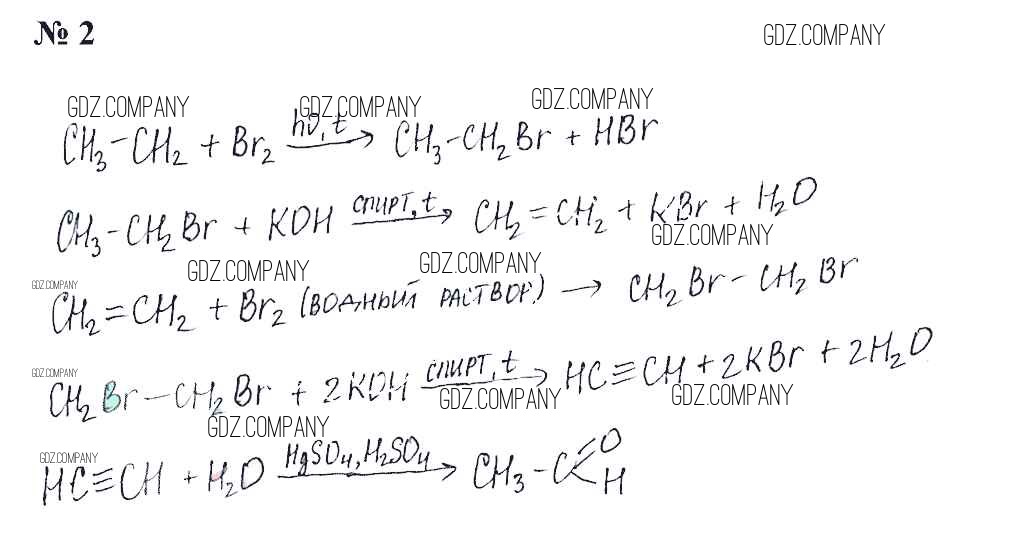 № 2 GDZ.COMPANY
GDZ.COMPANY GDZ.COMPANY GDZ.COMPANY
CH₃-CH₂ + Br₂ hν, t → CH₃-CH₂Br + HBr
CH₃-CH₂Br + KOH спирт, t → CH₂=CH₂ + KBr + H₂O
GDZ.COMPANY
GDZ.COMPANY GDZ.COMPANY GDZ.COMPANY
CH₂=CH₂ + Br₂ (водный раствор) → CH₂Br-CH₂Br
GDZ.COMPANY
CH₂Br-CH₂Br + 2KOH спирт, t → HC≡CH + 2KBr + 2H₂O
GDZ.COMPANY GDZ.COMPANY
GDZ.COMPANY
GDZ.COMPANY
HC≡CH + H₂O HgSO₄, H₂SO₄ → CH₃-C=O
H